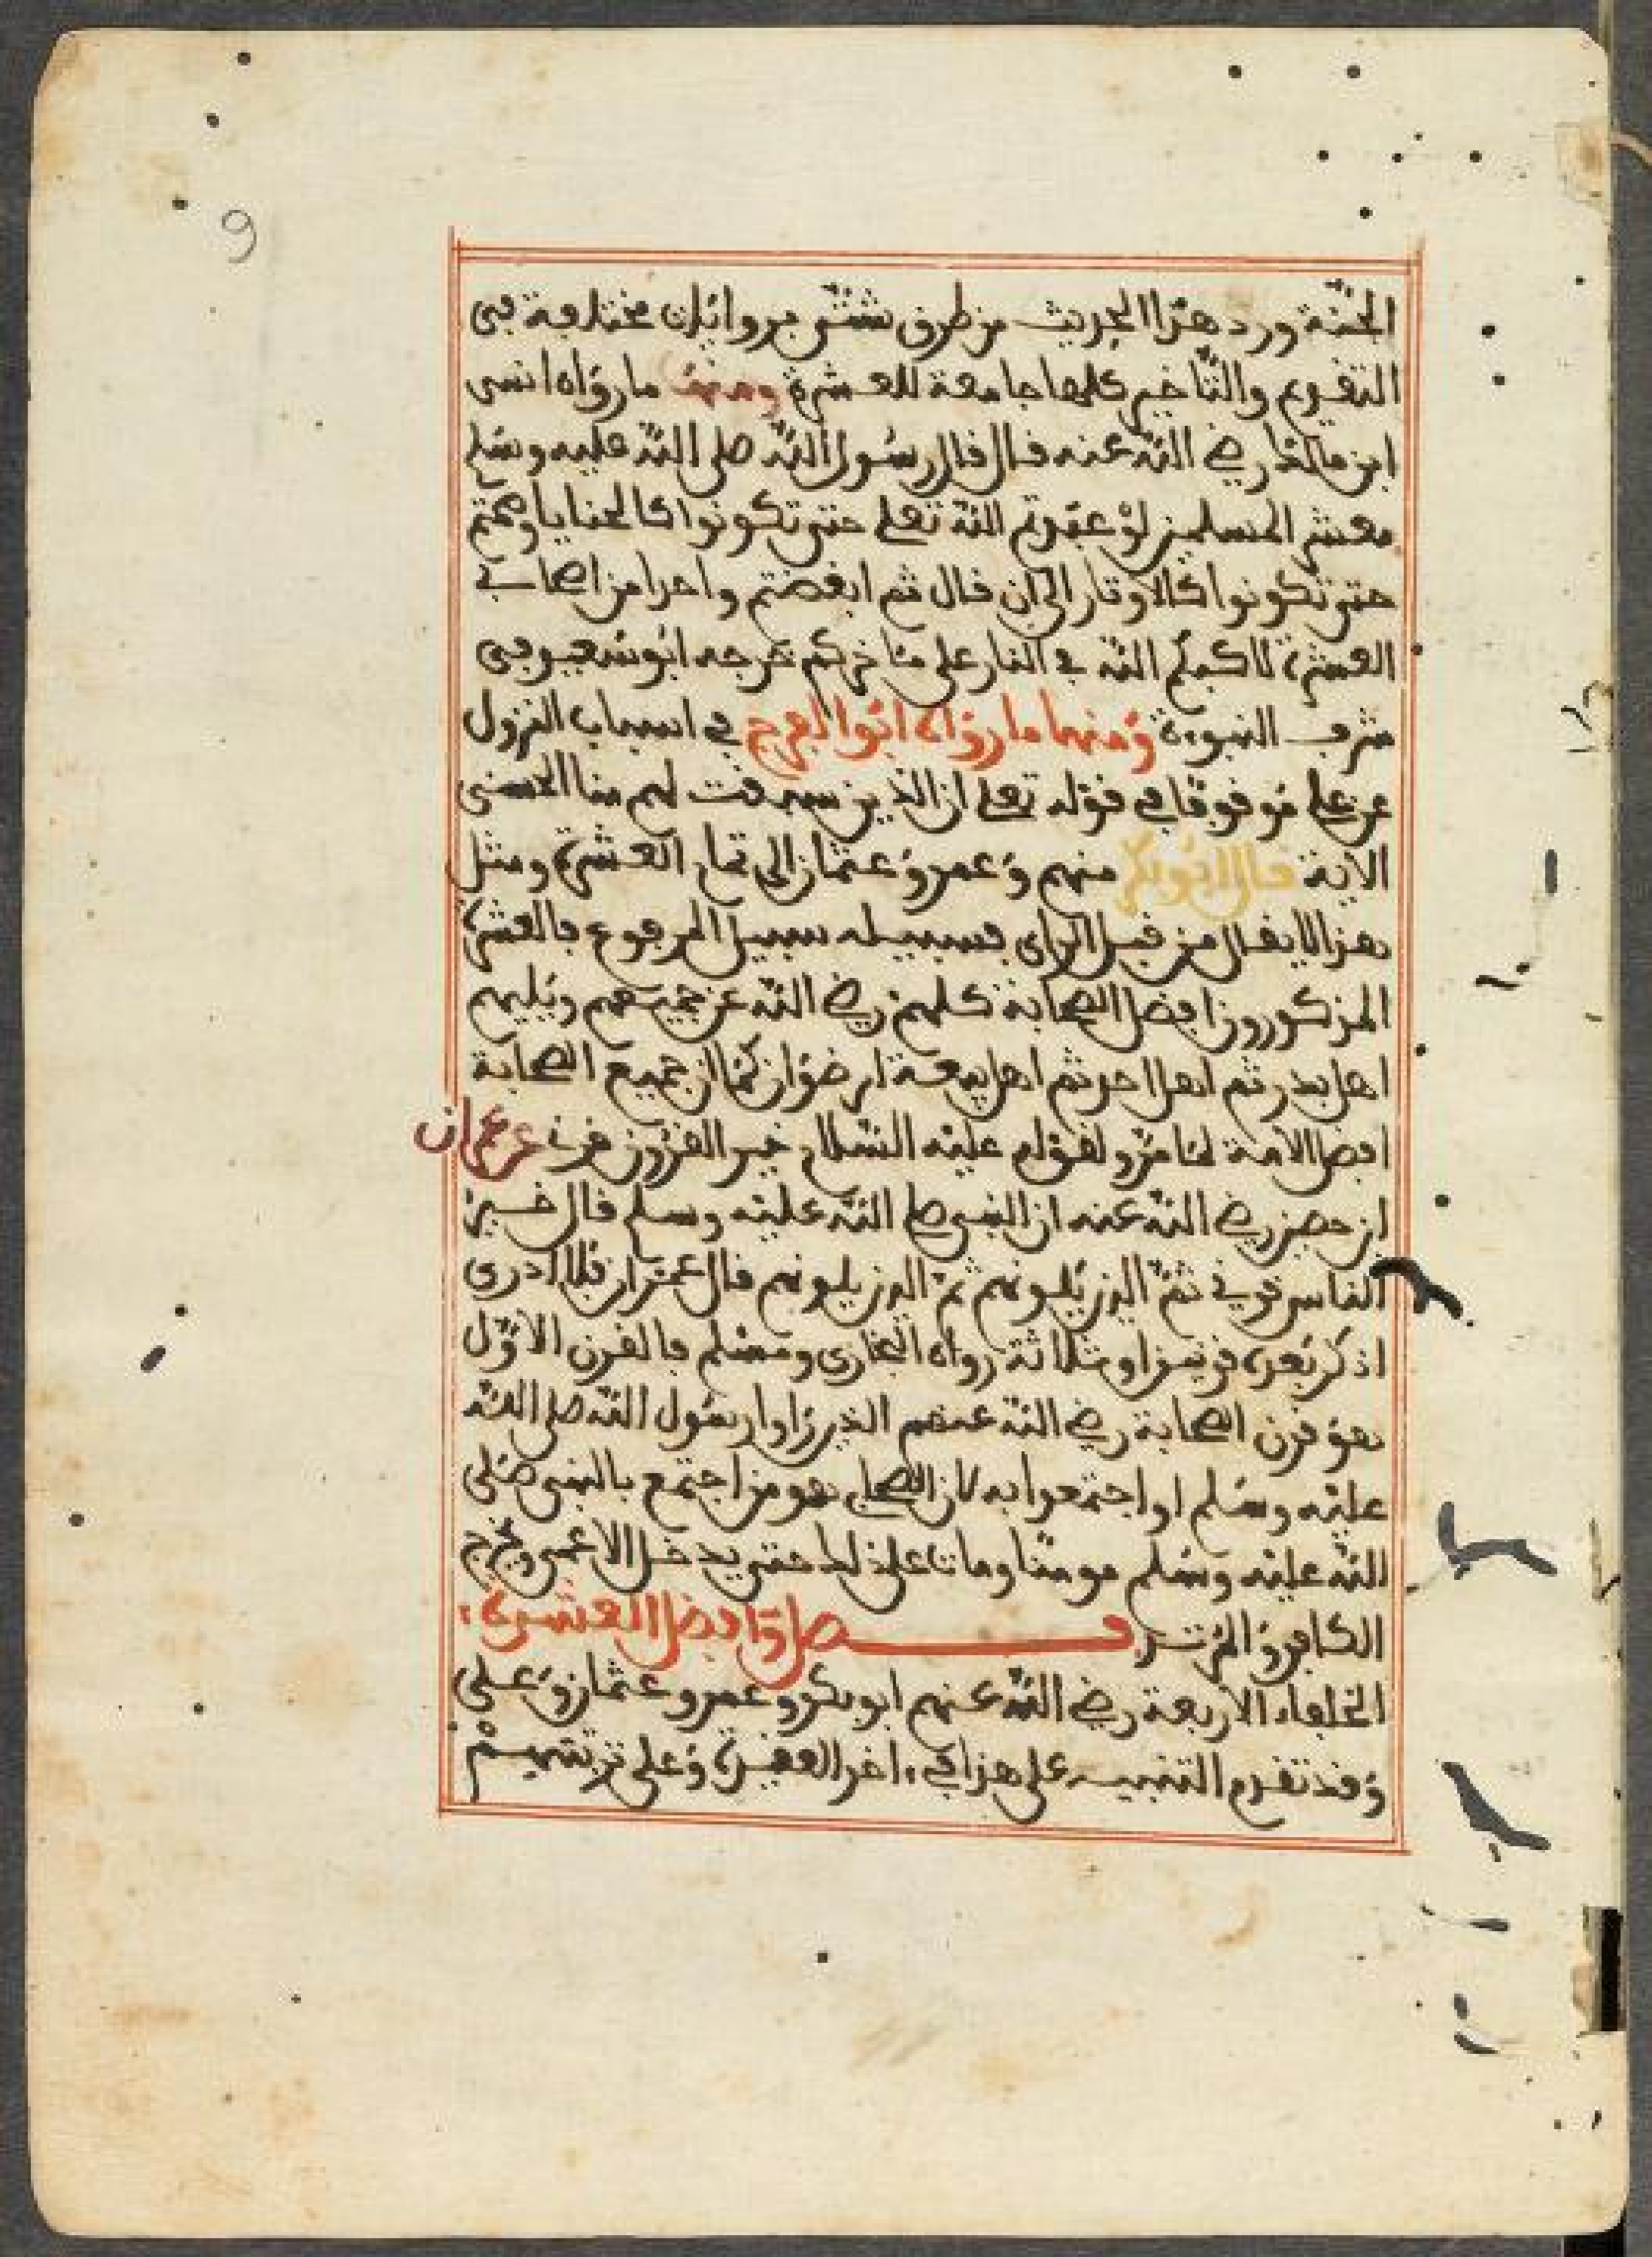 9
الجنة ورد هذا الحديث من طرق شتى بروايات مختلفة في
التقديم والتاخير كلها جامعة للعشرة ومنها ما رواه انس
ابن مالك رضي الله عنه قال قال رسول الله صلى الله عليه وسلم
معشر المسلمين لو عبدتم الله تعلى حتى تكونوا كالحنايا وصمتم
حتى تكونوا كالاوتار الى ان قال ثم ابغضتم واحدا من اصحابي
العشرة لاكبكم الله في النار على مناخركم خرجه ابو سعيد في
شرف النبوءة ومنها ما رواه ابوا الفرج في اسباب النزول
عن علي موقوفا في قوله تعلى ان الذين سبقت لهم منا الحسنى
الاية قال ابو بكر منهم وعمر وعثمان الى تمام العشرة ومثل
هذا لا يقال من قبل الراي فسبيله سبيل المرفوع فالعشرة
المذكورون افضل الصحابة كلهم رضي الله عن جميعهم ويليهم
اهل بدر ثم اهل احد ثم اهل بيعة الرضوان كما ان جميع الصحابة
افضل الامة لما مر ولقوله عليه السلام خير القرون قرني عن عمران
ابن حصين رضي الله عنه ان النبي صلى الله عليه وسلم قال خير
الناس قرني ثم الذين يلونهم ثم الذين يلونهم قال عمران فلا ادري
اذكر بعده قرنين او ثلاثة رواه البخاري ومسلم فالقرن الاول
هو قرن الصحابة رضي الله عنهم الذين راوا رسول الله صلى الله
عليه وسلم او اجتمعوا به لان الصحابي هو من اجتمع بالنبي صلى
الله عليه وسلم مومنا ومات على ذلك حتى يدخل الاعمى ويخرج
الكافر والمرتد فصل وافضل العشرة
الخلفاء الاربعة رضي الله عنهم ابو بكر وعمر وعثمان وعلي
وقد تقدم التنبيه على هذا في ءاخر العقيدة وعلى ترتيبهم